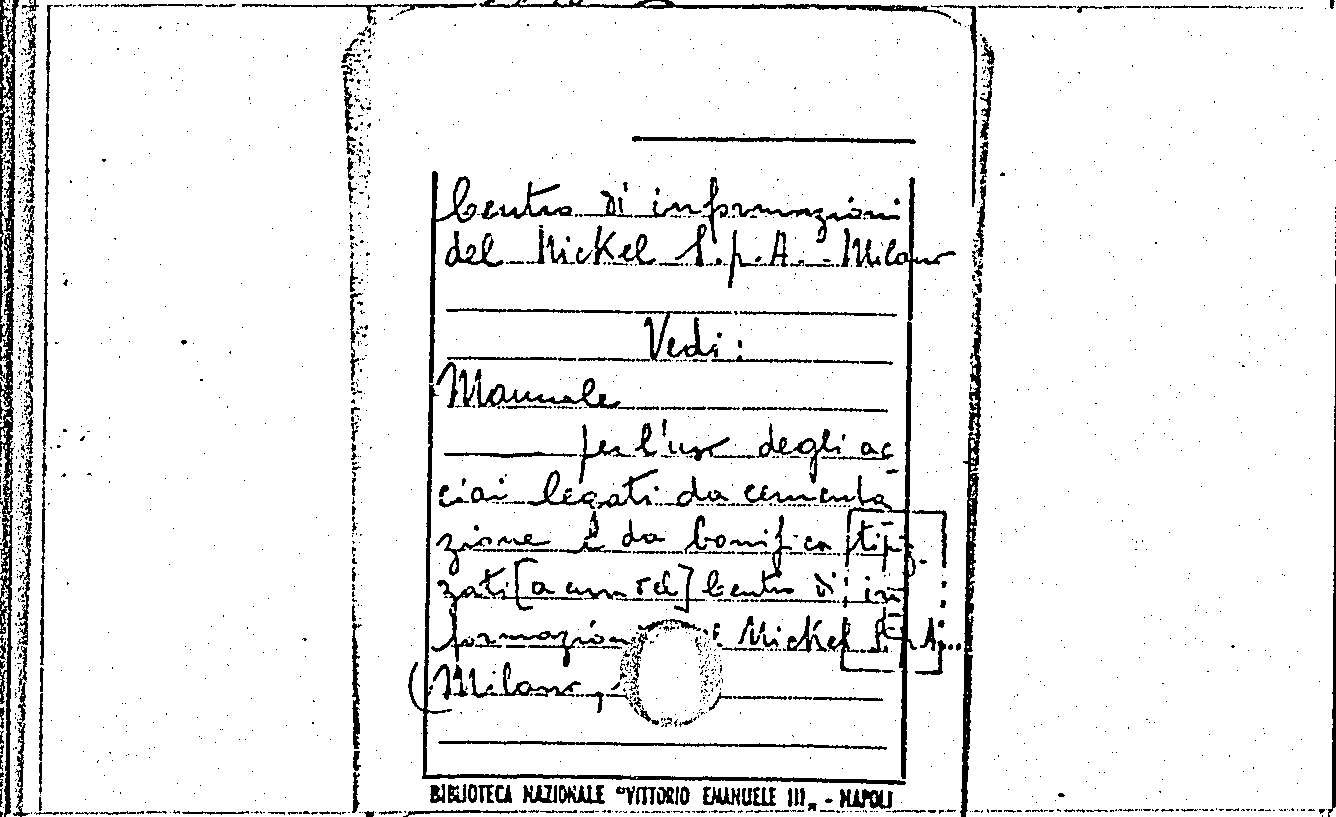 Centro di informazioni
del Nickel S.p.A. - Milano
Vedi:
Manuale
per l'uso degli ac
ciai legati da cementa
zione e da bonifica tipiz-
zati [a cura del] Centro di in
formazioni Nickel S.p.A...
(Milano,
BIBLIOTECA NAZIONALE "VITTORIO EMANUELE III„ - NAPOLI